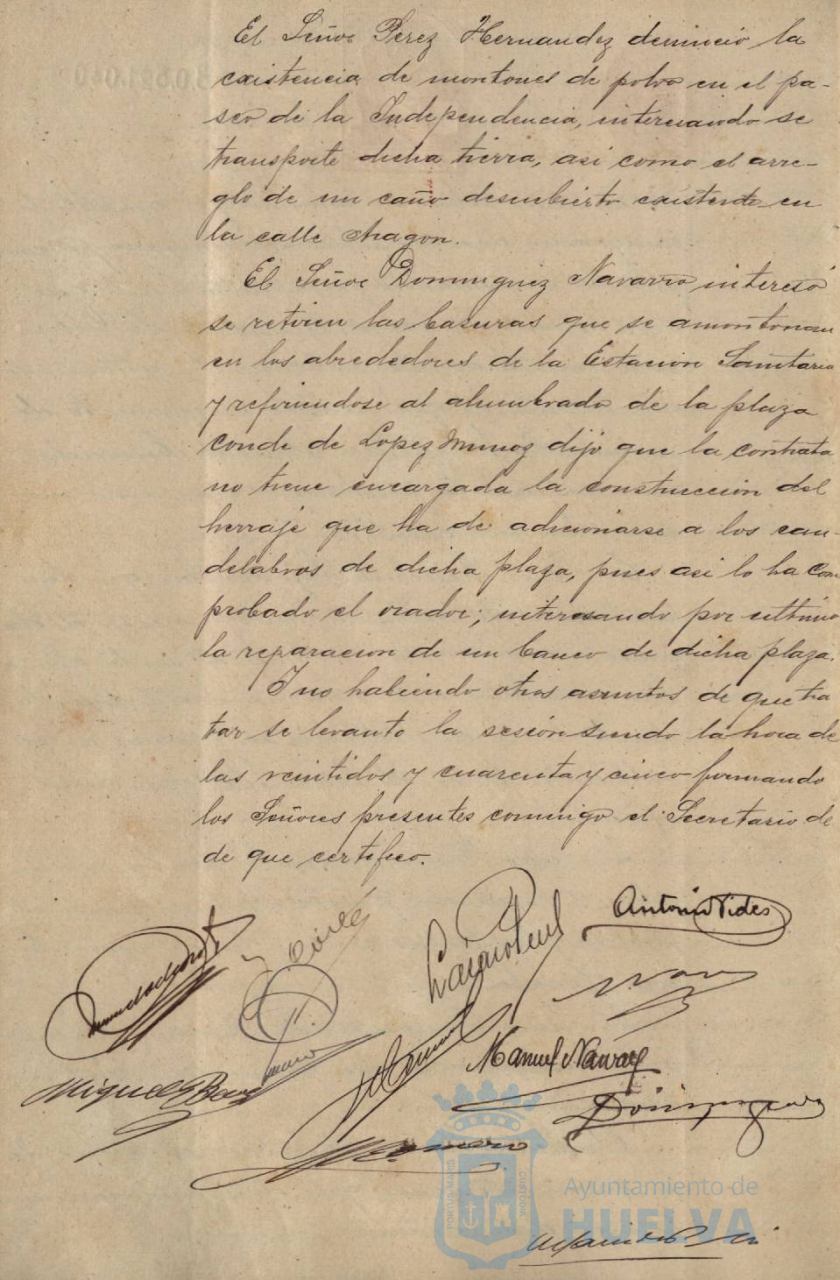 El Señor Perez Hernandez denunció la
existencia de montones de polvo en el pa-
seo de la Independencia, interesando se
transporte dicha tierra, asi como el arre-
glo de un caño descubierto existente en
la calle Aragon.
El Señor Dominguez Navarro interesó
se retiren las basuras que se amontonan
en los alrededores de la Estación Sanitaria
y refiriendose al alumbrado de la plaza
conde de Lopez Muñoz dijo que la contrata
no tiene encargada la construcción del
herraje que ha de adicionarse a los can-
delabros de dicha plaza, pues asi lo ha com
probado el orador; interesando por ultimo
la reparacion de un banco de dicha plaza.
Y no habiendo otros asuntos de que tra
tar se levanto la sesión siendo la hora de
las veintidos y cuarenta y cinco firmando
los Señores presentes conmigo el Secretario de
de que certifico.
Antonio Vides
Manuel Navarro
Miguel
Dominguez
PORTUS MARIS
CUSTODIA
Ayuntamiento de
HUELVA